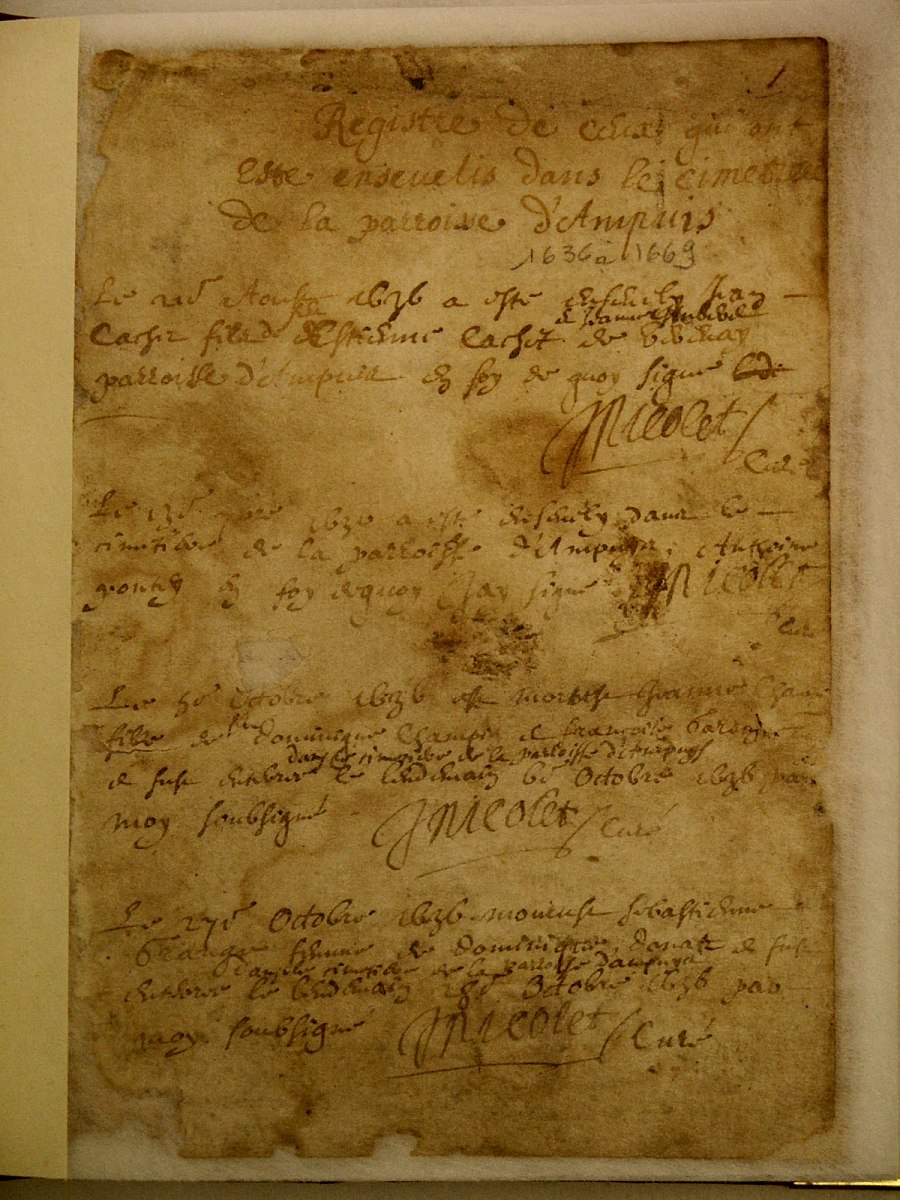 1
Registre de ceux qui ont
este enseuelis dans le cimet
de la parroisse d'Ampuis
1636 à 1669
Le Aoust 1636 a este enseuely Jean
Cachet filz d'Estienne Cachet de
parroisse d'Ampuis en foy de quoy signé
JNicolet
Curé
Le 1636 a este enseuely dans le
cimetiere de la parroisse d'Ampuys, Anthoine
en foy dequoy Jay signé JNicolet
Curé
Le 5e Octobre 1636 est morte Jeanne
fille de Dominique Champin et francoise
dans le cimetiere de la parroisse d'Ampuys
et fust enterree le lendemain 6e Octobre 1636 par
moy soubsigné JNicolet Curé
Le Octobre 1636 mourust sebastienne
femme de Dominique Donat et fust
dans le cimetiere de la parroisse dampuys
enterree le lendemain Octobre 1636 par
moy soubsigné JNicolet Curé